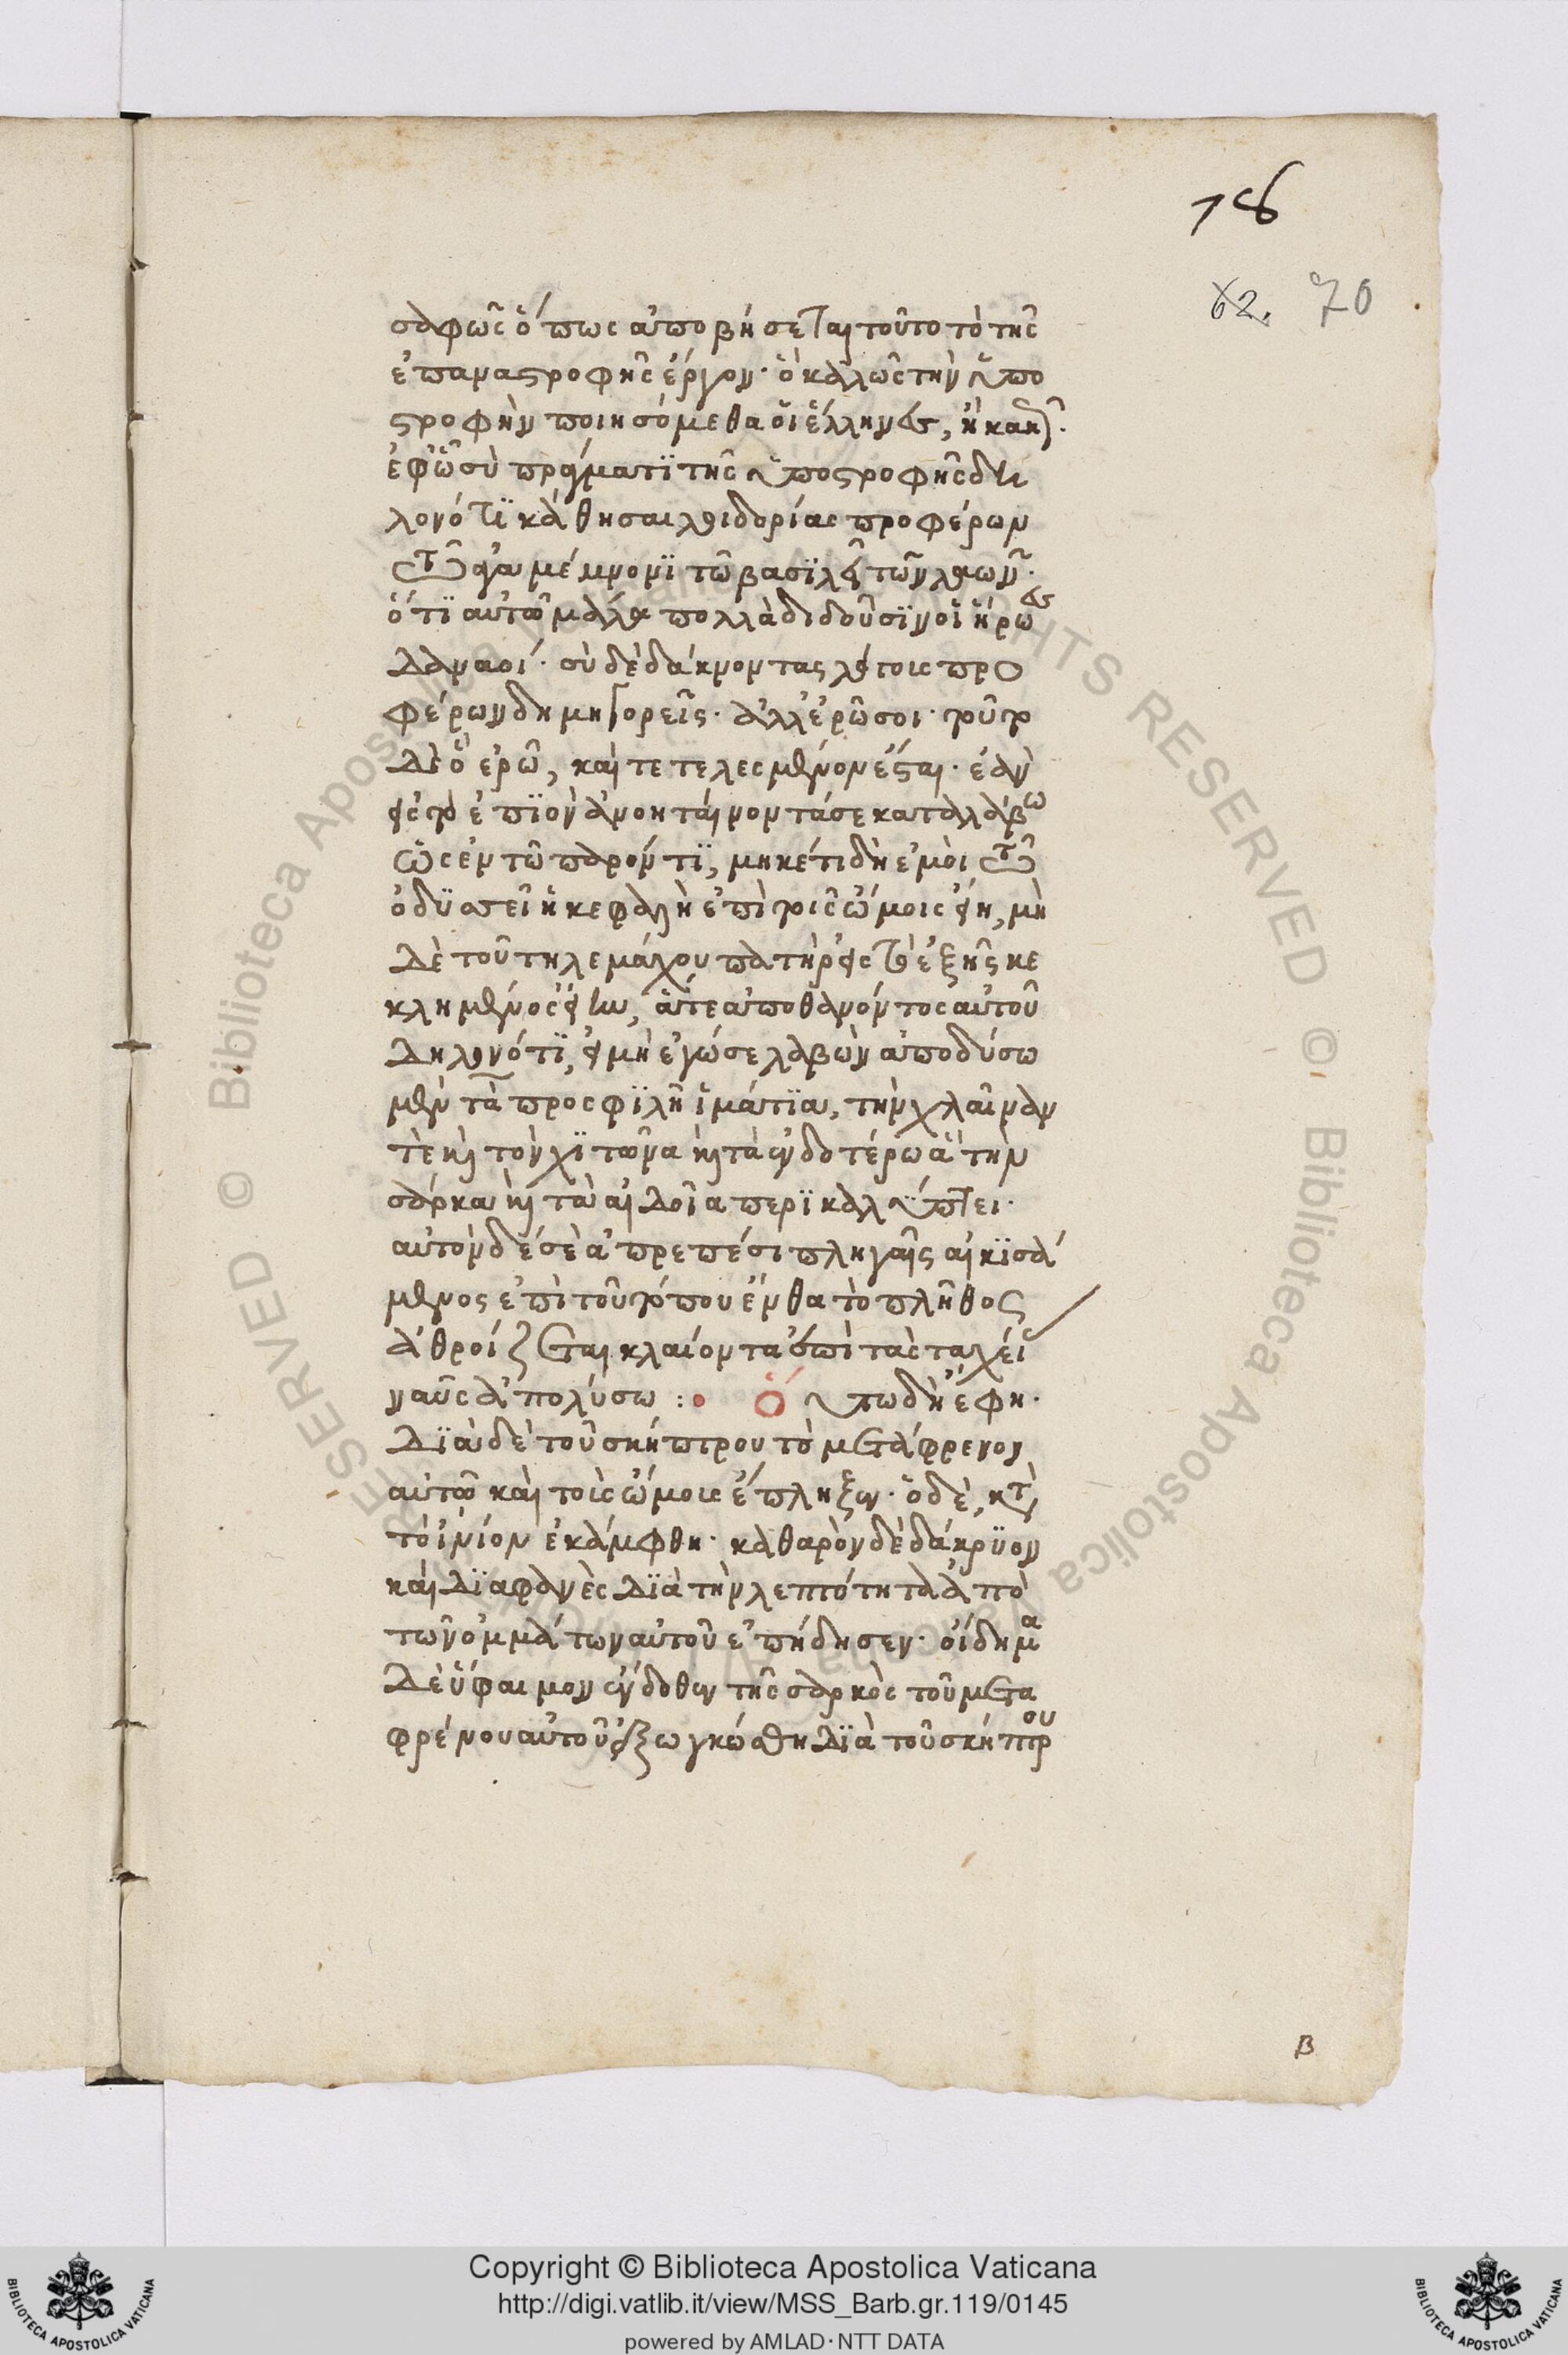 18
62. 70
σαφῶς ὅπως ἀποβήσεται τοῦτο τὸ τῆς
ἐπαναστροφῆς ἔργον· ὃ καλῶς τὴν ὑπο
στροφὴν ποιησόμεθα οἱ ἕλληνες, ἢ κακῶς·
ἐφ ᾧ σὺ πράγματϊ τῆς ὑποστροφῆς δη
λονότϊ κάθησαι λοιδορίας προφέρων
τῶ ἀγαμέμνονϊ τῶ βασϊλεῖ τῶν λαῶν·
ὅτϊ αὐτῶ μάλα πολλὰ διδοῦσϊν οἱ ἥρωες
Δαναοί· σὺ δὲ δάκνοντας λόγοις προ
φέρων δημηγορεῖς· ἀλλ ἐρῶ σοι· τοῦτο
δὲ ὃ ἐρῶ, καὶ τετελεσμένον ἔσται· ἐὰν
εἰς τὸ ἐπϊὸν ἀνοηταίνοντά σε καταλάβω
ὡς ἐν τῶ παρόντϊ, μηκέτι δὴ ἐμοὶ τῶ
ὀδϋσσεῖ ἡ κεφαλὴ ἐπὶ τοῖς ὤμοις εἴη, μὴ
δὲ τοῦ τηλεμάχου πατὴρ εἰς τὸ ἑξῆς κε
κλημένος εἴην, ἅτε ἀποθανόντος αὐτοῦ
δηλονότϊ, εἰ μὴ ἐγώ σε λαβὼν ἀποδύσω
μὲν τὰ προσφϊλῆ ἱμάτϊα, τὴν χλαῖναν
τὲ καὶ τὸν χϊτῶνα καὶ τὰ ἐνδοτέρω ἃ τὴν
σάρκα καὶ τὰ αἰδοῖα περϊκαλύπτει·
αὐτὸν δέ σὲ ἀπρεπέσι πληγαῖς αἰκϊσά
μενος ἐπὶ τοῦ τόπου ἔνθα τὸ πλῆθος
ἀθροίζεται κλαίοντα ἐπὶ τὰς ταχεί
ναῦς ἀπολύσω :• Ὁ ὕτω δὴ ἔφη·
Δϊὰ δὲ τοῦ σκήπτρου τὸ μετάφρενον
αὐτῶ καὶ τοῖς ὤμοις ἔπληξεν· ὁ δὲ, κτὰ
τὸ ἰνίον ἐκάμφθη· καθαρὸν δὲ δάκρϋον
καὶ δϊαφανὲς δϊὰ τὴν λεπτότητα ἀπὸ
τῶν ὀμμάτων αὐτοῦ ἐπήδησεν· οἴδημα
δὲ ὕφαιμον ἔνδοθεν τῆς σαρκὸς τοῦ μετα
φρένου αὐτοῦ ἐξωγκώθη δϊὰ τοῦ σκήπτρου
β
Copyright © Biblioteca Apostolica Vaticana
http://digi.vatlib.it/view/MSS_Barb.gr.119/0145
powered by AMLAD·NTT DATA